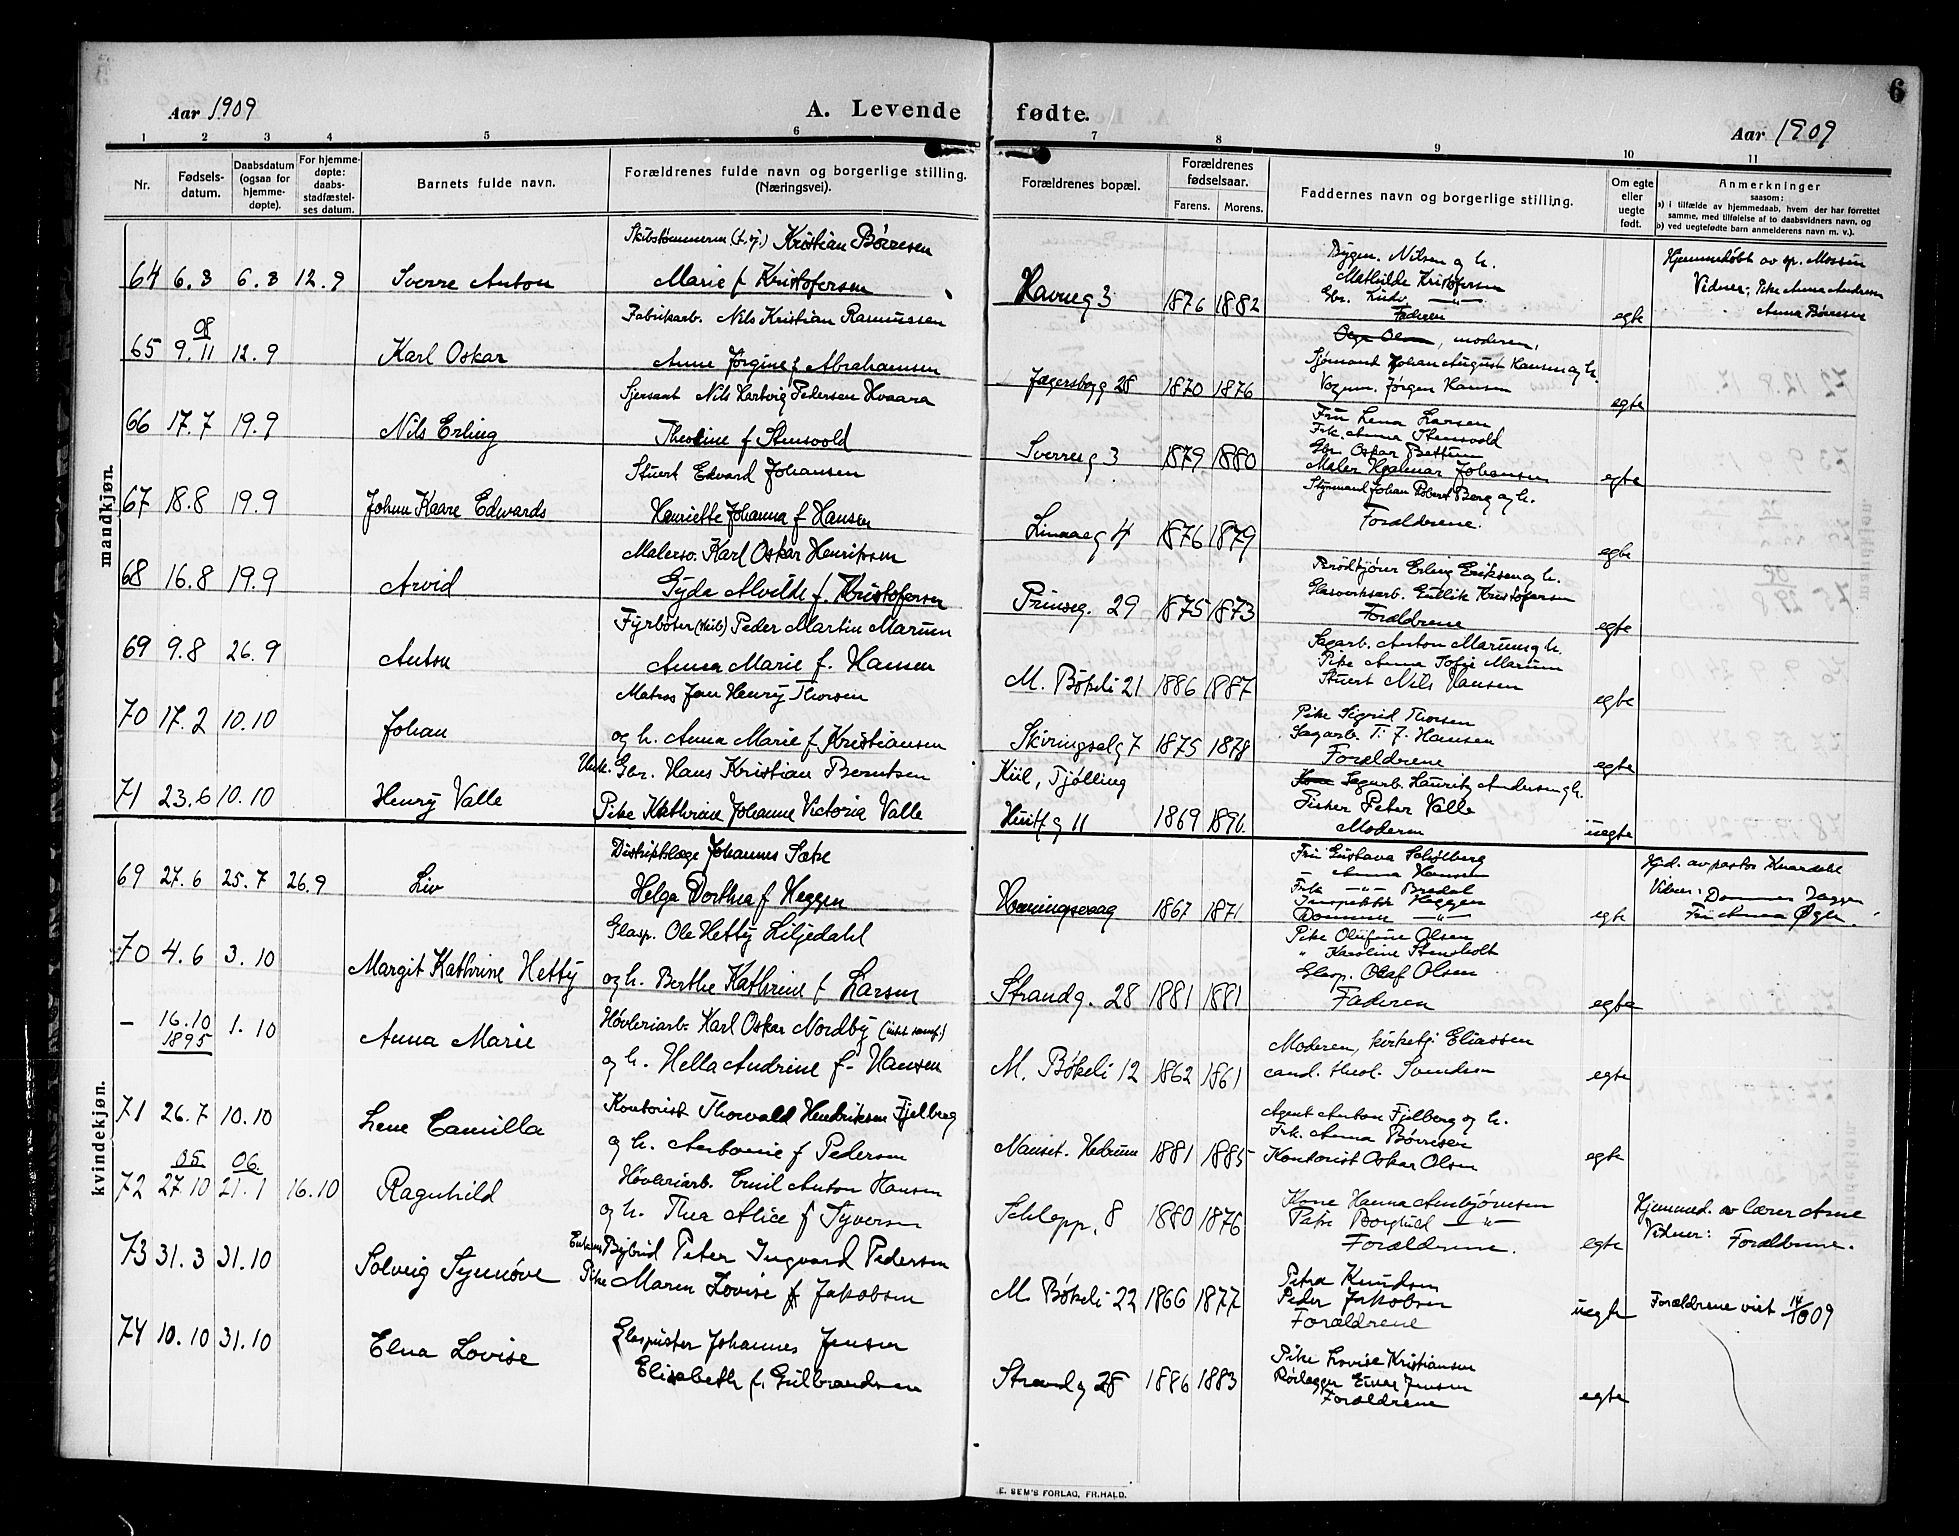 6
Aar 1909
A. Levende fødte.
Aar 1909
1 2 3 4 5 6 7 8 9 10 11
Nr.
Fødsels-
datum.
Daabsdatum
(ogsaa for
hjemme-
døpte).
For hjemme-
døpte:
daabs-
stadfæstel-
ses datum.
Barnets fulde navn.
Forældrenes fulde navn og borgerlige stilling.
(Næringsvei).
Forældrenes bopæl.
Forældrenes
fødselsaar.
Farens. Morens.
Faddernes navn og borgerlige stilling.
Om egte
eller
uegte
født.
Anmerkninger
saasom:
a) i tilfælde av hjemmedaab, hvem der har forrettet
samme, med tilføielse af to daabsvidners navn, og
b) ved uegtefødte barn anmelderens navn m. v.).
mandkjøn.
Skibstømmerm (f. 7.) Kristian Børresen
64 6.8 6.8 12.9 Sverre Anton Marie f Kristofersen
Havneg 3 1876 1882 egte
Bygm. Nilsen og h.
Mathilde Kristofersen
Gbr. Ludv. —"—
Faderen
Hjemmedøbt av sp. Mossin
Vidner: Pike Anna Andresen
Anna Børresen
Fabrikarb. Nils Kristian Rasmussen
08
65 9.11 12.9 Karl Oskar Anne Jørgine f Abrahamsen
Jegersborg 28 1870 1876 egte
Olga Olsen, moderen,
Sjømand Johan August Hansen og h.
Vognm. Jørgen Hansen
Sjersant Nils Hartvig Pedersen Hvaara
66 17.7 19.9 Nils Erling Theoline f Stensvold
Sverreg 3 1879 1880 egte
Fru Lena Larsen
Frk. Anna Stensvold
Gbr. Oskar Bettum
Maler Hjalmar Johansen
Stuert Edvard Johansen
67 18.8 19.9 Johnn Kaare Edwards Henriette Johanna f Hansen
Linaaeg 4 1876 1879 egte
Styrmand Johan Robert Berg og h.
Forældrene.
Malersv. Karl Oskar Henriksen
68 16.8 19.9 Arvid Gyda Alvilde f. Kristofersen
Prinseg. 29 1875 1873 egte
Brødkjører Erling Eriksen og h.
Glasverksarb. Entlik Kristofersen
Forældrene
Fyrbøter (skib) Peder Martin Marum
69 9.8 26.9 Anton Anna Marie f. Hansen
M. Bøkeli 21 1886 1887 egte
Sagarb. Anton Marum og h.
Pike Anna Sofie Marum
Stuert Nils Hansen
Matros Jan Henry Thorsen
70 17.2 10.10 Johan og h. Anna Marie f Kristiansen
Skiringsalg 7 1875 1878 egte
Pike Sigrid Thorsen
Sagarb T. J. Hansen
Forældrene
Unk. Gbr. Hans Kristian Berntsen
71 23.6 10.10 Henry Valle Pike Kathrine Johanne Victoria Valle
Kiil, Tjølling
Huitfg 11 1869 1890. uegte
Kone Sagarb. Lauritz Andersen og h.
Fisker Peter Valle
Moderen
kvindekjøn.
Distriktslæge Johannes Sætre
69 27.6 25.7 26.9 Liv Helga Dorthea f Heggen
Honningsvaag 1867 1871 egte
Fru Gustava Schjelberg
Anna Hansen
Frk —"— Bredal
Inspektør Heggen
Dommer —"—
Hjd. av pastor Kvandahl
Vidner: Dommer Jaggen
Fru Anna Øgle.
Glasp. Ole Hetty Liljedahl
70 4.6 3.10 Margit Kathrine Hetty og h. Berthe Kathrine f Larsen
Strandg. 28 1881 1881 egte
Pike Olufine Olsen
" Karoline Stensholt
Glasp. Olaf Olsen
Faderen
Høvleriarb. Karl Oskar Nordby
– 16.10 1.10 Anna Marie
1895
og h. Hella Andrine f. Hansen
M. Bøkeli 12 1862 1861 egte
Moderen, kirketj: Eliassen
cand. theol. Svendsen
Kontorist Thorvald Hendriksen Fjelberg
71 26.7 10.10 Lene Camilla og h. Antonie f Pedersen
Nanset. Hedrum 1881 1885 egte
Agent Anton Fjelberg og h.
Frk. Anna Børresen
Kontorist Oskar Olsen
05 06
Høvleriarb. Emil Anton Hansen
72 27.10 21.1 16.10 Ragnhild og h. Thea Alice f Syversen
Schlepp. 8 1880 1876 egte
Kone Hanna Arnbjørnsen
Pike Borghild —"—
Forældrene.
Hjemmed. av lærer Arne
Vidner: Forældrene.
Enkem Bybud Peter Ingvard Pedersen
73 31.3 31.10 Solveig Synnøve Pike Maren Lovise f Jakobsen
M. Bøkeli 22 1866 1877 uegte
Petra Knudsen
Peder Jakobsen
Forældrene
Forældrene viet 14/10 09
Glaspuster Johannes Jensen
74 10.10 31.10 Elna Lovise Elisabeth f. Gulbrandsen
Strandg 28 1886 1883 egte
Pike Lovise Kristiansen
Rørlægger Einar Jensen
Forældrene
E. SEM'S FORLAG, FR.HALD.